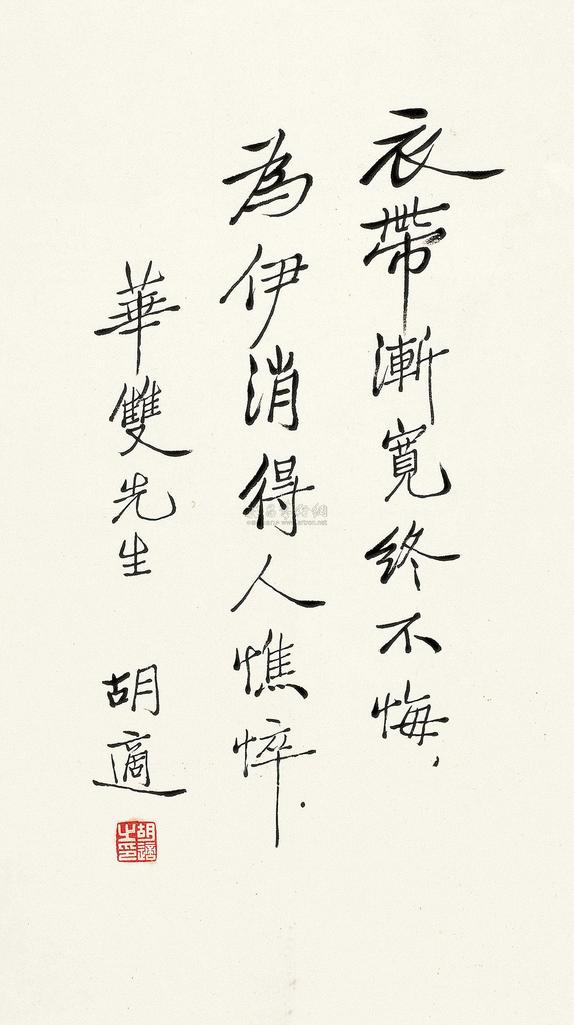 衣帶漸寬終不悔，
為伊消得人憔悴．
華雙先生　胡適
胡適之印